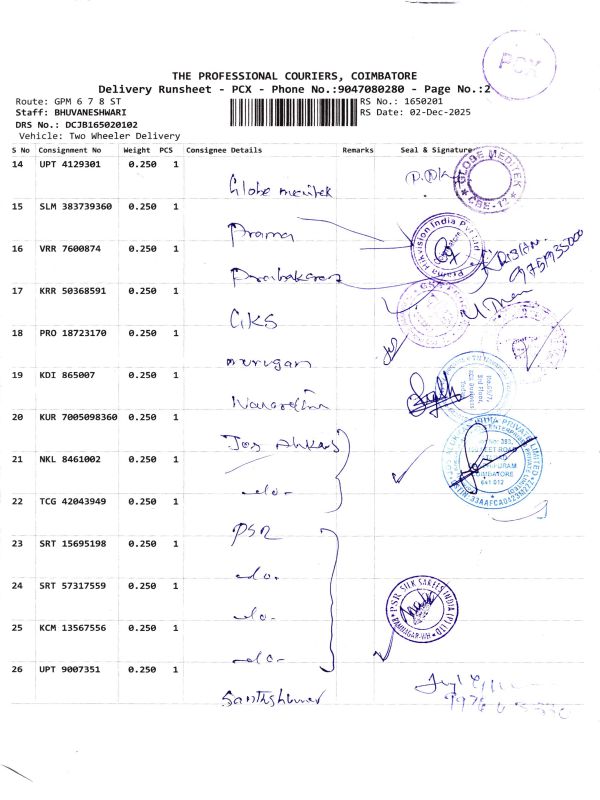 PCX
THE PROFESSIONAL COURIERS, COIMBATORE
Delivery Runsheet - PCX - Phone No.:9047080280 - Page No.:2
Route: GPM 6 7 8 ST
RS No.: 1650201
Staff: BHUVANESHWARI
RS Date: 02-Dec-2025
DRS No.: DCJB165020102
Vehicle: Two Wheeler Delivery
S No Consignment No Weight PCS Consignee Details Remarks Seal & Signature
14 UPT 4129301 0.250 1
Globe meditek
GLOBE MEDITEK
CBE-12
15 SLM 383739360 0.250 1
Prama
Prama Hikvision India Pvt Ltd
16 VRR 7600874 0.250 1
Prabakaran
9751935000
17 KRR 50368591 0.250 1
GKS
18 PRO 18723170 0.250 1
murugan
19 KDI 865007 0.250 1
20 KUR 7005098360 0.250 1
Jos
21 NKL 8461002 0.250 1
-do-
COIMBATORE
641 012
22 TCG 42043949 0.250 1
PSR
23 SRT 15695198 0.250 1
-do-
24 SRT 57317559 0.250 1
-do-
PSR SILK SAREES INDIA (P) LTD
RAMNAGAR-WH
25 KCM 13567556 0.250 1
-do-
26 UPT 9007351 0.250 1